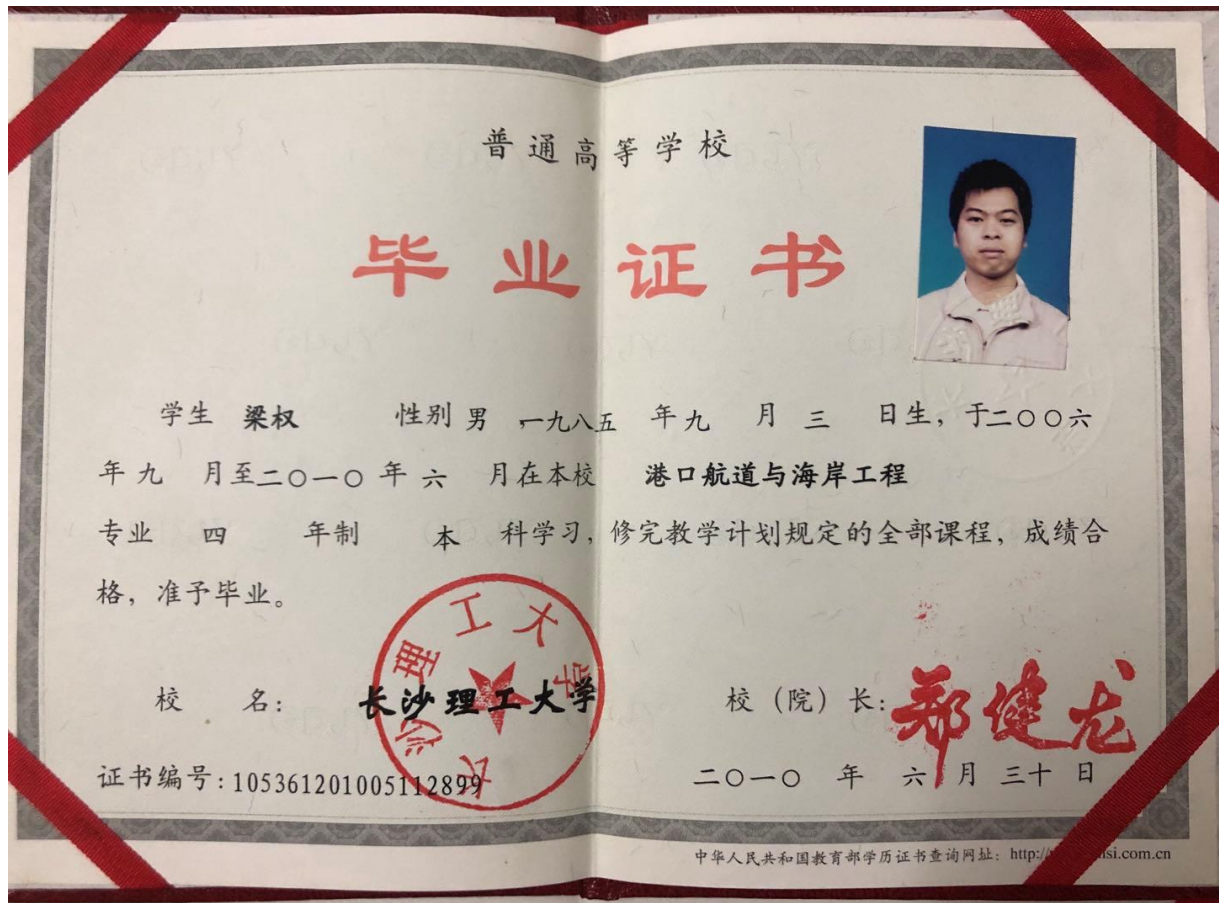 普通高等学校
毕业证书
学生 梁权 性别 男 一九八五 年 九 月 三 日生，于二〇〇六
年 九 月至二〇一〇 年 六 月在本校 港口航道与海岸工程
专业 四 年制 本 科学习，修完教学计划规定的全部课程，成绩合
格，准予毕业。
长沙理工大学
校 名：长沙理工大学 校（院）长：郑健龙
证书编号：105361201005112899 二〇一〇 年 六 月 三十 日
中华人民共和国教育部学历证书查询网址：http:// si.com.cn